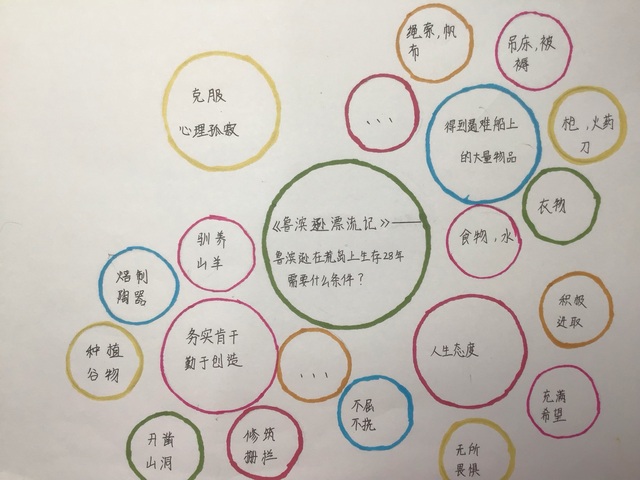 绳索,帆
布
吊床,被
褥
克服
心理孤寂
、、、
得到遇难船上
的大量物品
枪,火药
刀
衣物
食物,水
驯养
山羊
《鲁滨逊漂流记》——
鲁滨逊在荒岛上生存28年
需要什么条件?
焙制
陶器
积极
进取
务实肯干
勤于创造
人生态度
种植
谷物
、、、
不屈
不挠
充满
希望
开凿
山洞
修筑
栅栏
无所
畏惧